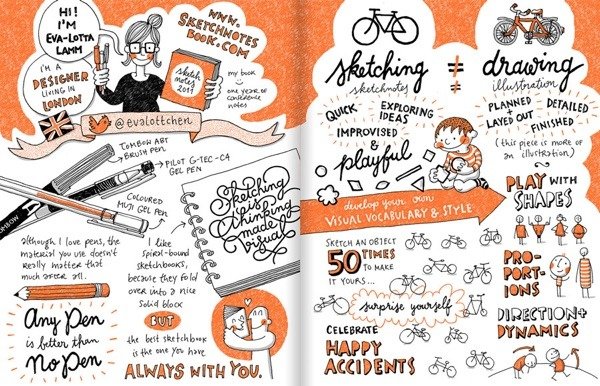 HI!
I'M
EVA-LOTTA
LAMM
WWW.
SKETCHNOTES
BOOK.COM
I'M A
DESIGNER
LIVING IN
LONDON
sketch
notes
2011
my book
one year of
conference
notes
@evalottchen
TOMBOW ABT
BRUSH PEN
PILOT G-TEC-C4
GEL PEN
COLOURED
MUJI GEL PEN
TOMBOW
Sketching
is
Thinking
made
Visual
although I love pens, the
material you use doesn't
really matter that
much after all.
I like
spiral-bound
sketchbooks,
because they fold
over into a nice
solid block
Any Pen
is better than
No Pen
BUT
the best sketchbook
is the one you have
ALWAYS WITH YOU.
sketching
sketchnotes
≠
drawing
illustration
QUICK
EXPLORING
IDEAS
IMPROVISED
&
playful
PLANNED
&
LAYED OUT
DETAILED
FINISHED
(this piece is more of
an illustration)
develop your own
VISUAL VOCABULARY & STYLE
PLAY WITH
SHAPES
SKETCH AN OBJECT
50 TIMES
TO MAKE
IT YOURS...
surprise yourself
CELEBRATE
HAPPY
ACCIDENTS
PRO-
PORT-
IONS
DIRECTION+
DYNAMICS